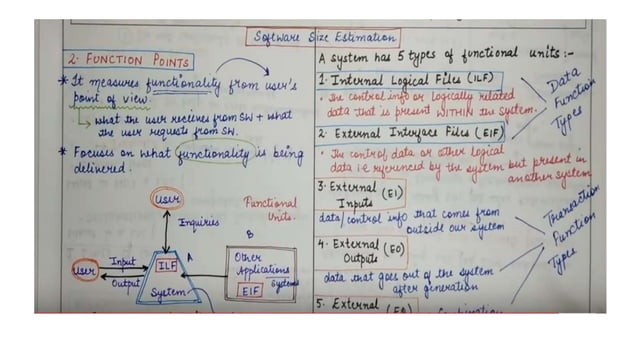 Software Size Estimation
2. FUNCTION POINTS
* It measures functionality from user's
point of view.
what the user receives from SW + what
the user requests from SW.
* Focuses on what functionality is being
delivered.
User
Enquiries
Functional
Units.
B
A
User
Input
Output
ILF
System
Other
Applications
Systems
EIF
A system has 5 types of functional units :-
1. Internal Logical Files (ILF)
• The control info or logically related
data that is present WITHIN the system.
2. External Interface Files (EIF)
• The control data or other logical
data i.e referenced by the system but present in
another system
Data
Function
Types
3. External
Inputs (EI)
data/control info that comes from
outside our system
4. External
Outputs (EO)
data that goes out of the system
after generation
Transaction
Function
Types
5. External